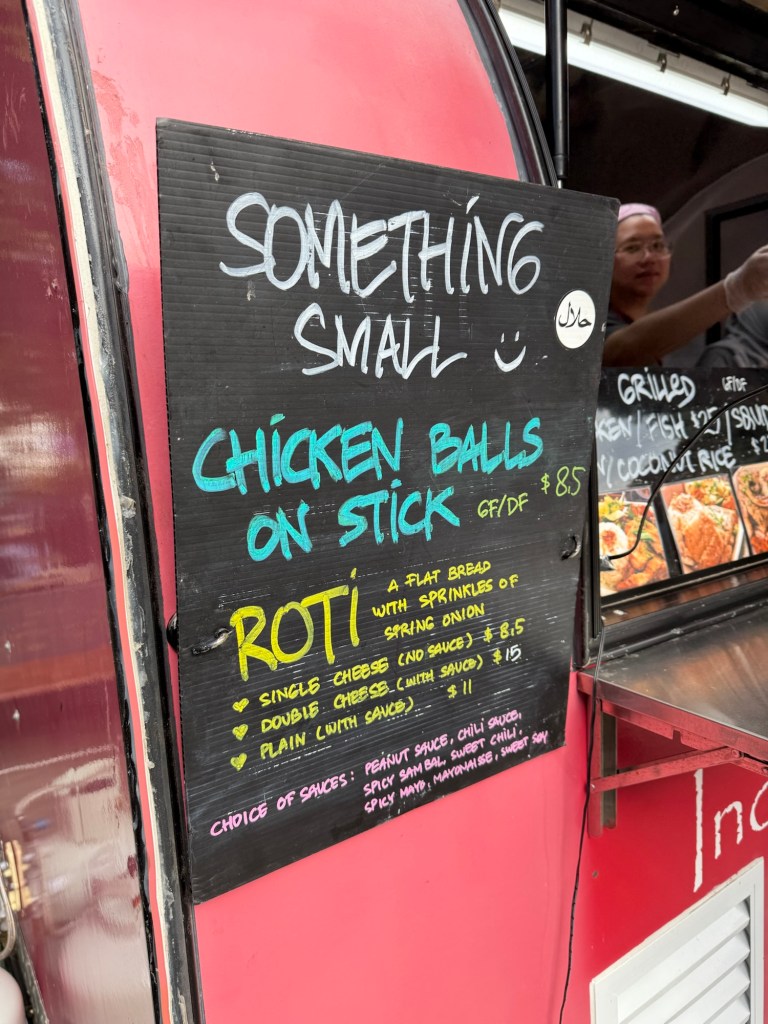 SOMETHING
SMALL
حلال
CHICKEN BALLS
ON STICK GF/DF $8.5
ROTI A FLAT BREAD
WITH SPRINKLES OF
SPRING ONION
SINGLE CHEESE (NO SAUCE) $8.5
DOUBLE CHEESE (WITH SAUCE) $15
PLAIN (WITH SAUCE) $11
CHOICE OF SAUCES: PEANUT SAUCE, CHILI SAUCE,
SPICY SAMBAL, SWEET CHILI,
SPICY MAYO, MAYONAISE, SWEET SOY
GRILLED GF/DF
KEN/FISH $25/
/COCONUT RICE